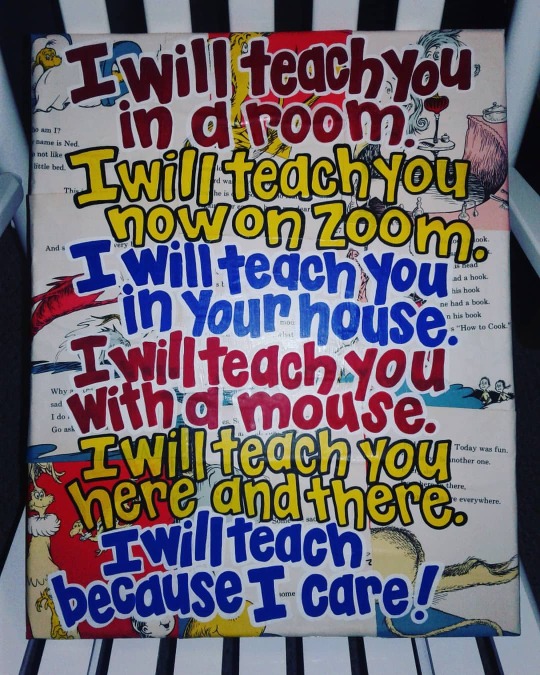 I will teach you
in a room.
I will teach you
now on zoom.
I will teach you
in your house.
I will teach you
with a mouse.
I will teach you
here and there.
I will teach
because I care!
am I?
name is Ned.
not like
little bed.
This
And
very
look.
head
had a hook.
his hook
had a book.
n his book
s "How to Cook."
Why
sad
I do
Go ask
Today was fun.
another one.
there,
everywhere.
Some
some